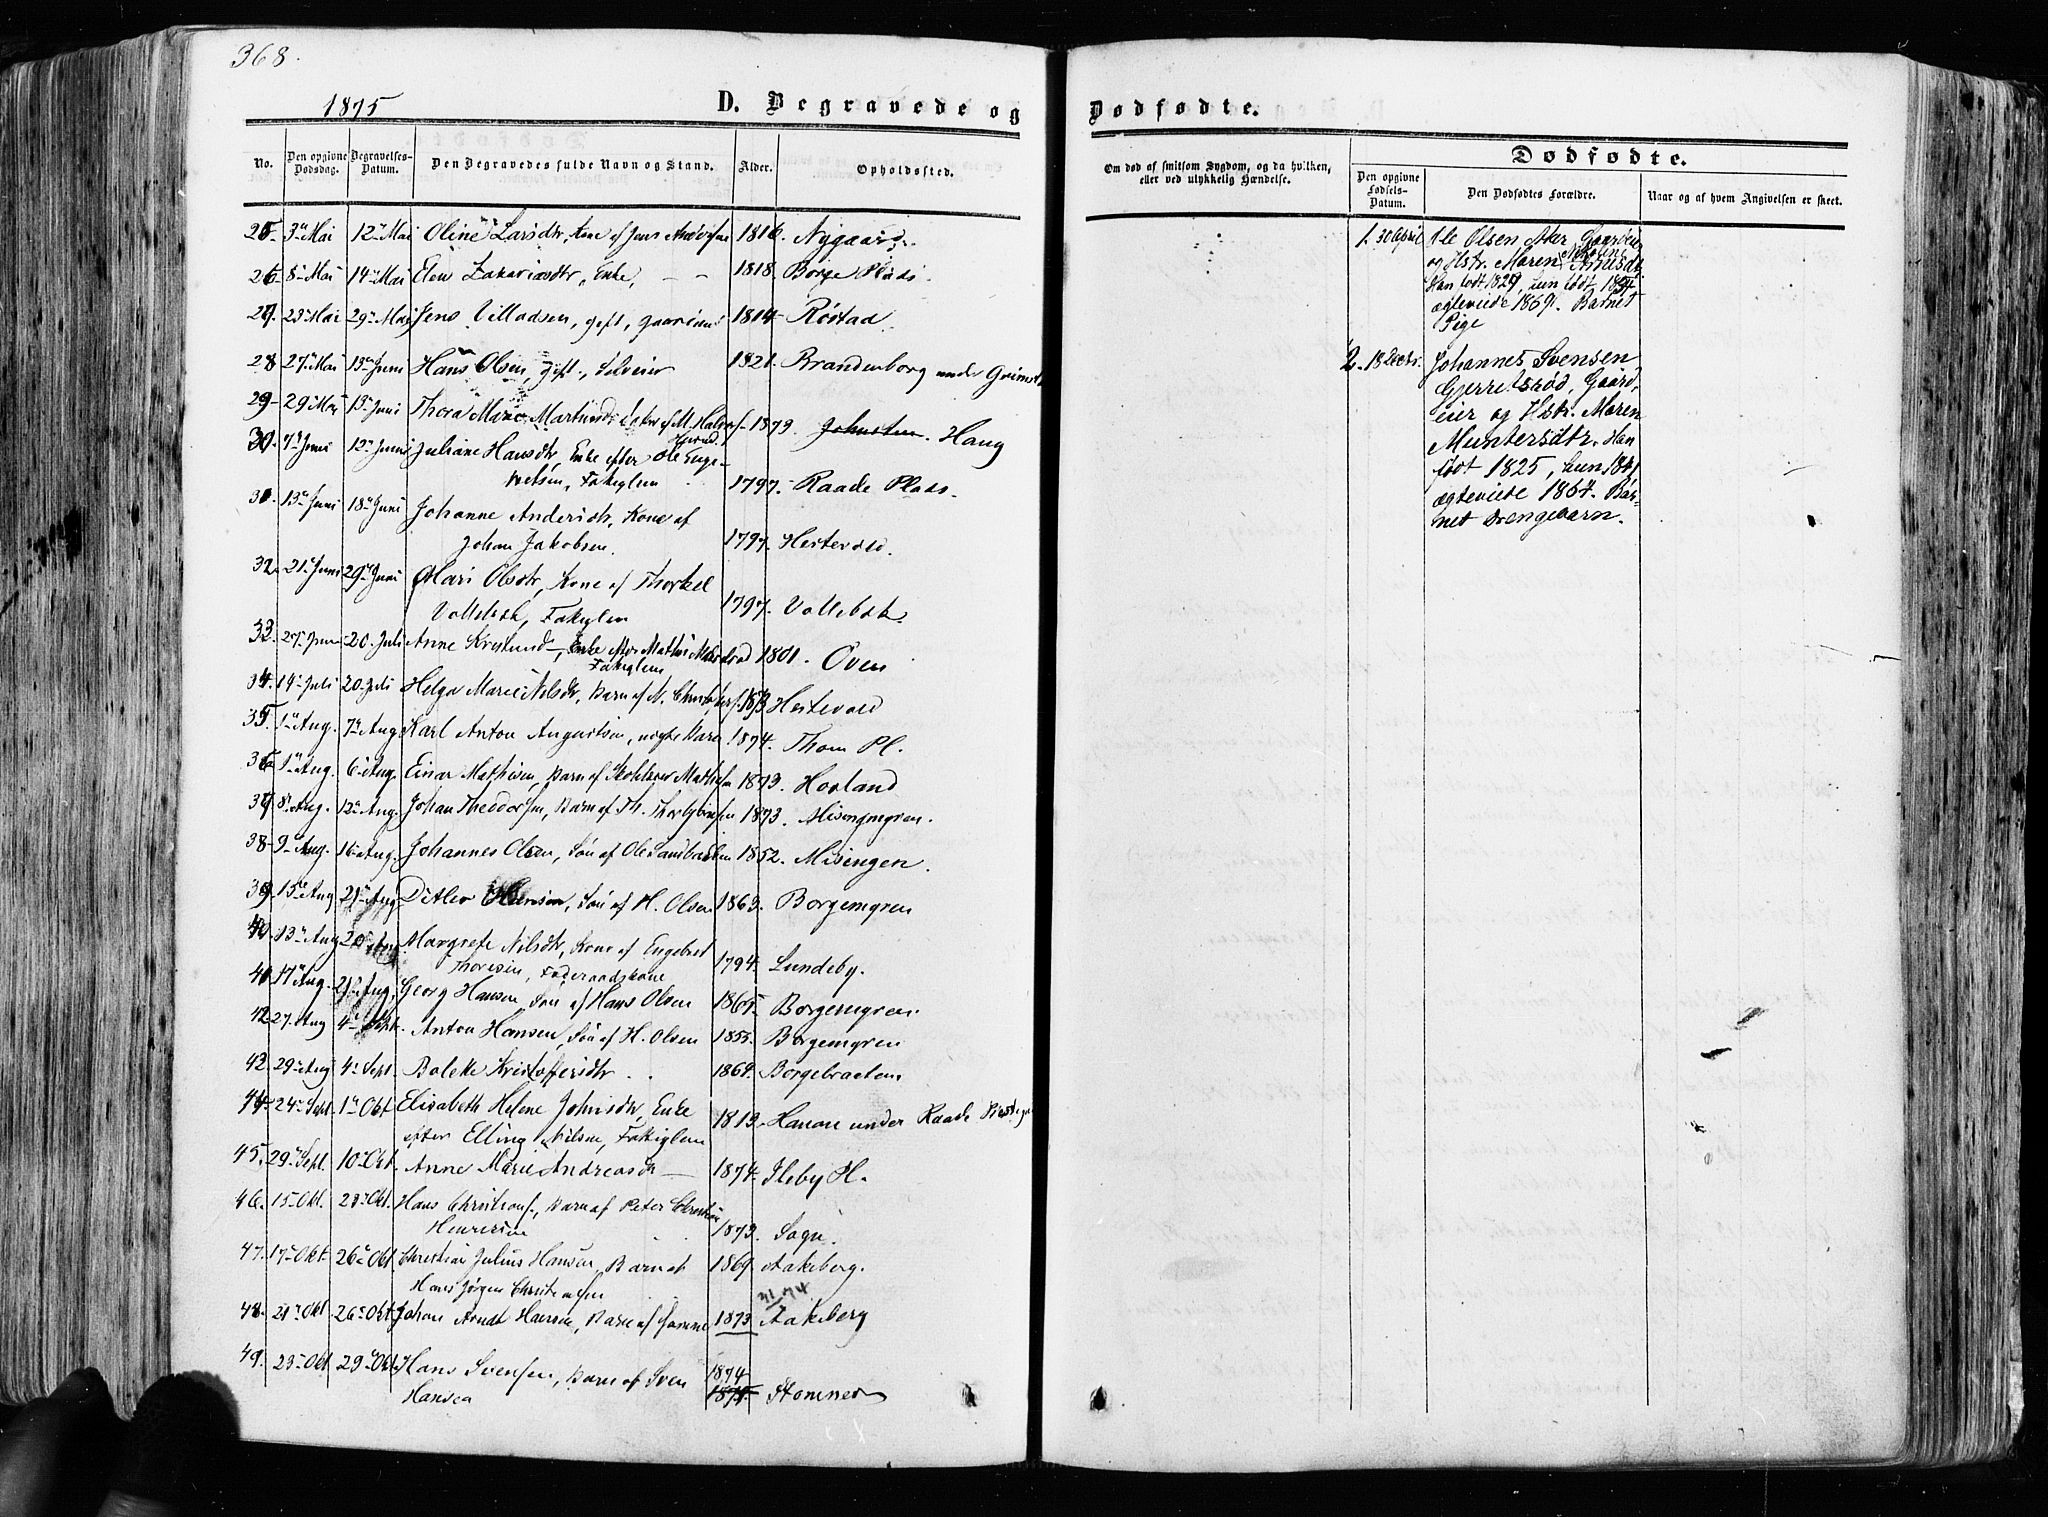 368.
1875
D. Begravede og
No. Den opgivne Dødsdag. Begravelses-Datum. Den Begravedes fulde Navn og Stand. Alder. Opholdssted.
25. 3 Mai 12 Mai Oline Larsdtr, Kone af Jens 1816. Nygaard.
26. 8 Mai 14 Mai Elen Zakariasdtr, Enke, — — 1818. Borge Plads.
27. 23 Mai 29 Mai Jens Villadsen, gift, 1814 Røstad
28 27 Mai 13 Juni Hans Olsen, gift., Selveier 1821. Brandenborg under
29 29 Mai 13 Juni Thora Marie af M. 1873. Haug
30. 7 Juni 12 Juni Juliane Hansdtr, Enke efter Ole Enge-
bretsen, Fattiglem 1797. Raade Plads.
31. 13 Juni 18 Juni Johanne Andersdtr, Kone af
Johan Jakobsen. 1797. Hestevold.
32. 21 Juni 29 Juni Mari Olsdtr, Kone af Thorkel
Vollebæk, Fattiglem 1797. Vollebæk.
33. 27 Juni 20. Juli Anne Enke efter Mathis 1801. Oven
Fattiglem
34. 14 Juli 20. Juli Helga Marie Nilsdtr, Barn af N. 1873 Hestevold
35. 1 Aug. 7 Aug. Karl Anton Augustsen, uægte Barn 1874. Thom Pl.
36. 1 Aug. 6 Aug. Einar Mathisen, Barn af 1873. Hovland
37. 8 Aug. 12 Aug. Johan Theodorsen, Barn af Th. 1873. Misengmgren.
38. 9 Aug. 16 Aug. Johannes Olsen, Søn af Ole 1852. Misengen.
39. 15 Aug 21 Aug. Ditlev Hansen, Søn af H. Olsen 1863. Borgemgren
40. 13 Aug 20 Aug. Margrete Nilsdtr, Kone af Engebret
Thoresen, Føderaadskone 1794. Lundeby.
41. 17 Aug. 21 Aug. Georg Hansen, Søn af Hans Olsen 1865. Borgemgren.
42. 27. Aug 4 Sept. Anton Hansen, Søn af H. Olsen 1855. Borgemgren
43. 29 Aug 4 Sept. Bolette Kristoffersdtr . . 1864. Borgebraaten
44. 24 Sept. 1 Okt. Elisabeth Helene Johnsdtr, Enke
efter Elling Nilsen, Fattiglem 1813. under Raade
45. 29 Sept. 10 Okt. Anne Marie Andreasdtr — 1874. Ileby H.
46. 15 Okt. 23 Okt. Hans Christians., Barn af Peter Christian
1873. Sogn.
47. 17 Okt. 26 Okt. Christian Julius Hansen, Barn af 1869. Aakeberg.
Hans Jørgen Christensen
31/1 74
48. 21 Okt. 26 Okt. Johan Arndt Hansen, Barn af samme 1873 Aakeberg
49. 23 Okt. 29 Okt. Hans Svensen, Barn af Sven 1874
Hansen Stommen
Dødfødte.
Om død af smitsom Sygdom, og da hvilken, eller ved ulykkelig Hændelse.
Dødfødte.
Den opgivne Fødsels-Datum. Den Dødfødtes Forældre. Naar og af hvem Angivelsen er skeet.
1. 30 April Ole Olsen Aker, Gaardeier
og Hstr. Maren Andrine Arnesdtr
Han født 1829, hun født
ægteviede 1869. Barnet
Pige
2. 18 Decbr. Johannes Svensen
Gjerretsrød, Gaard-
eier og Hstr. Maren
Muntersdtr. Han
født 1825, hun 1841
ægteviede 1867. Bar-
net Drengebarn.